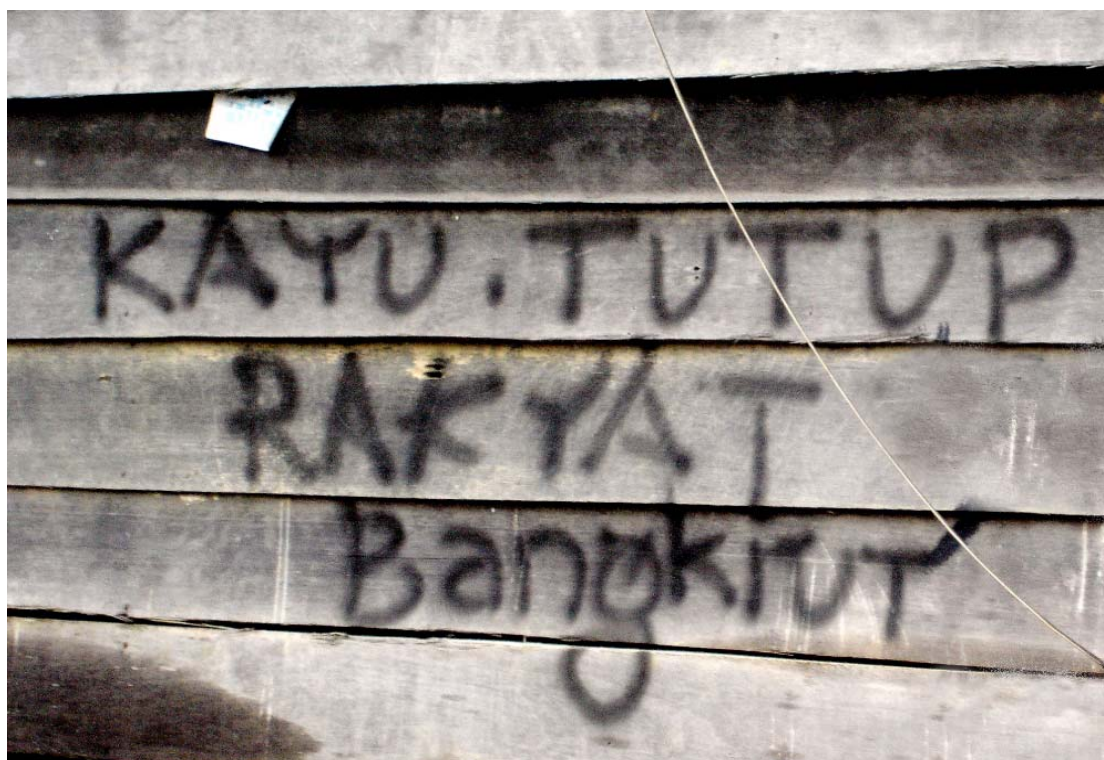 KAYU . TUTUP
RAKYAT
Bangkrut